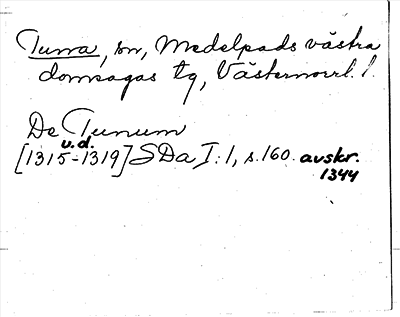 Tuna, sn, Medelpads västra
domsagas tg, Västernorrl. l.
De Tunum
u.d.
[1315-1319] SDa I:1, s.160. avskr.
1344